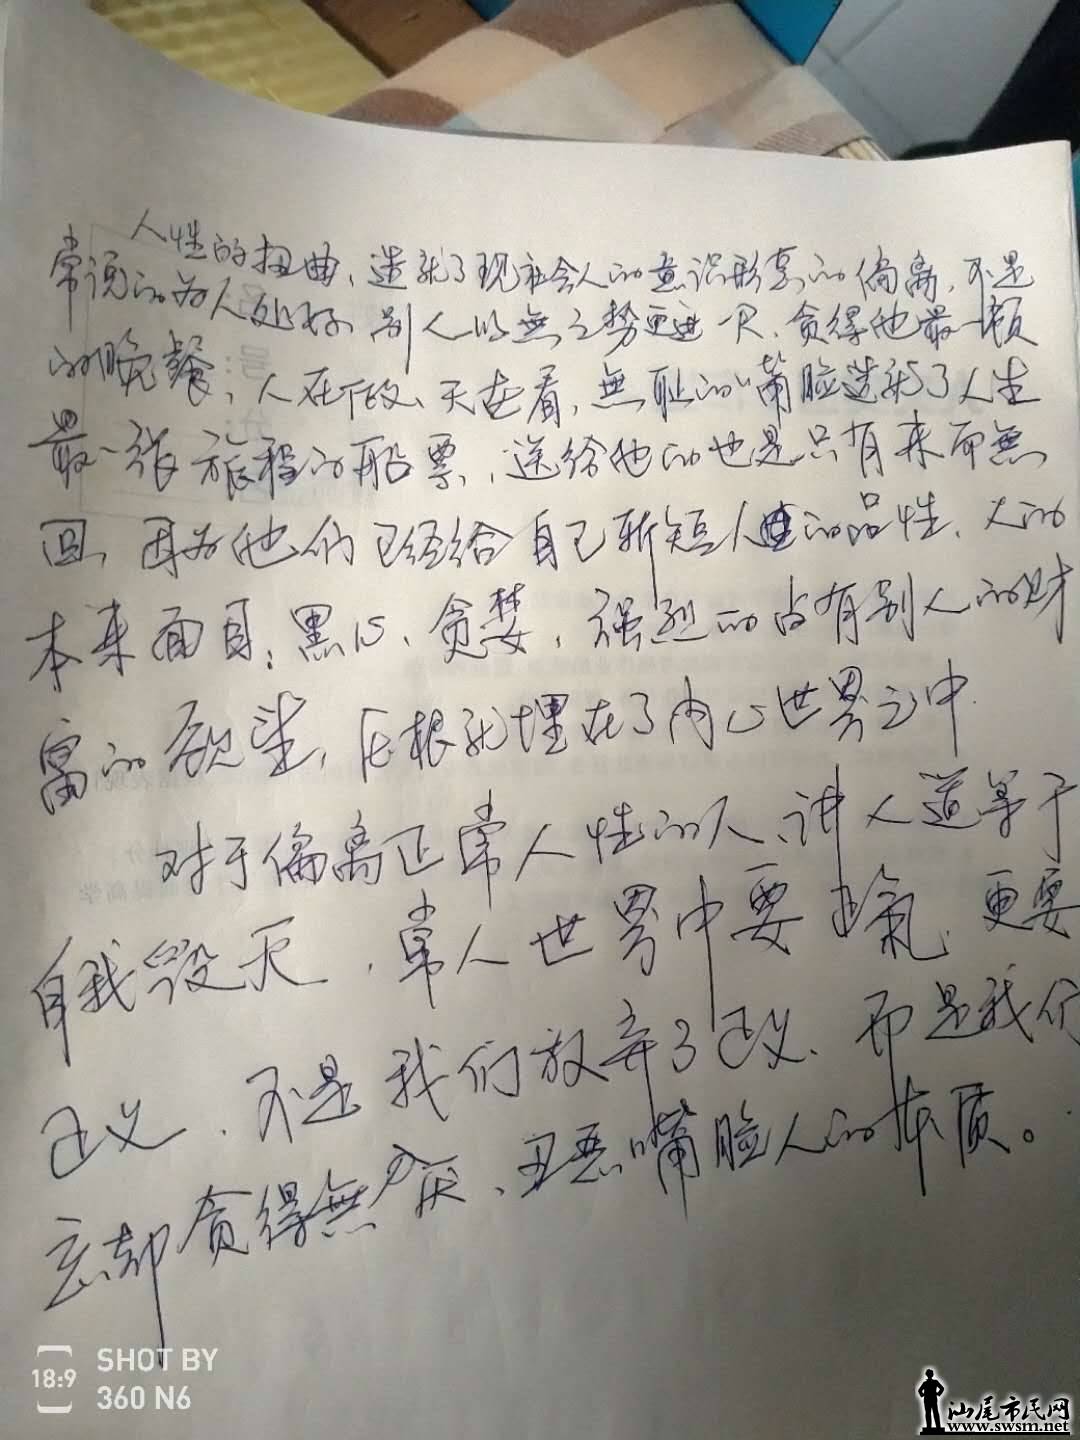 人性的扭曲、造就了现社会人的意识形态的偏离,不是
常说的为人处好 别人以無之势更进一尺、贪得他最一顿
的晚餐,人在做、天在看,無耻的嘴脸造就了人生
最一张旅程的船票,送给他的也是只有来而無
回,因为他们已经给自己斩短人的品性、人的
本来面目;黑心、贪婪,强烈的占有别人的财
富的欲望,压根就埋在了内心世界之中.
对于偏离正常人性的人、讲人道等于
自我毁灭,常人世界中要正氣,更要
正义、不是我们放弃了正义、而是我们
忘却贪得無厌、丑恶嘴脸人的本质。
18:9
SHOT BY
360 N6
汕尾市民网
www.swsm.net